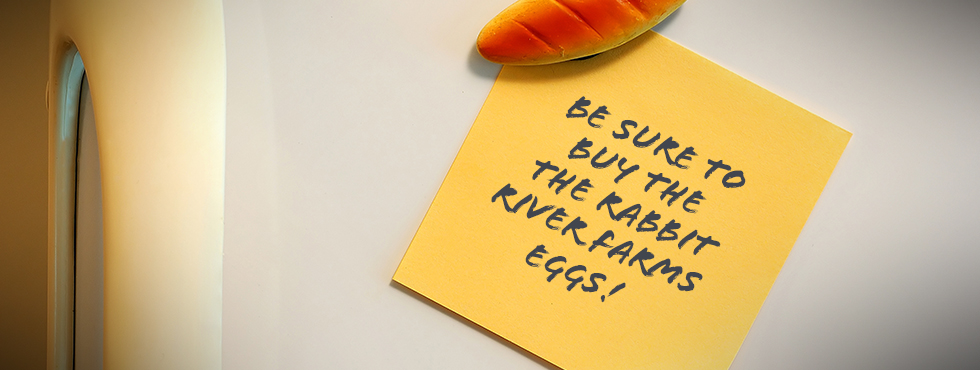 BE SURE TO
BUY THE
THE RABBIT
RIVER FARMS
EGGS!